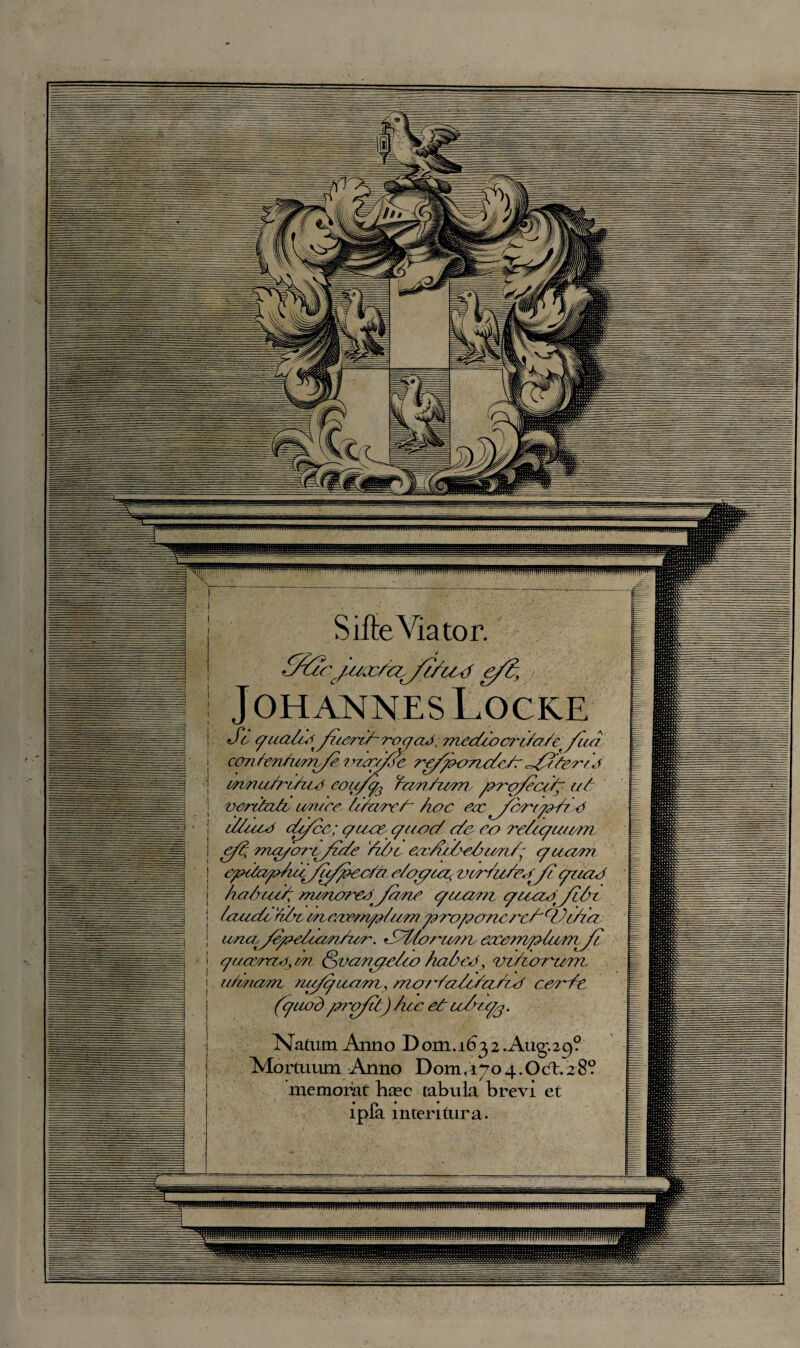 Siste Viator.
Hic juxta situs est,
JOHANNES LOCKE
Si qualis fuerit rogas, mediocritate sua
contentum se vixisse respondet. Literis
innutritus eousq; tantum profecit, ut
veritati unice litaret hoc ex scriptis
illius disce; quæ quod de eo reliquum
est, majori fide tibi exhibebunt, quam
epitaphii suspecta elogia, virtutes si quas
habuit, minores sane quam quas sibi
laudi tibi in exemplum proponeret. Vitia
una sepeliantur. Morum exemplum si
quæras, in Evangelio habes, vitiorum
utinam nusquam, mortalitatis certe
(quod prosit) hic et ubiq;.
Natum Anno Dom. 1632. Aug. 29º
Mortuum Anno Dom. 1704. Oct. 28º
memorat hæc tabula brevi et
ipsa interitura.